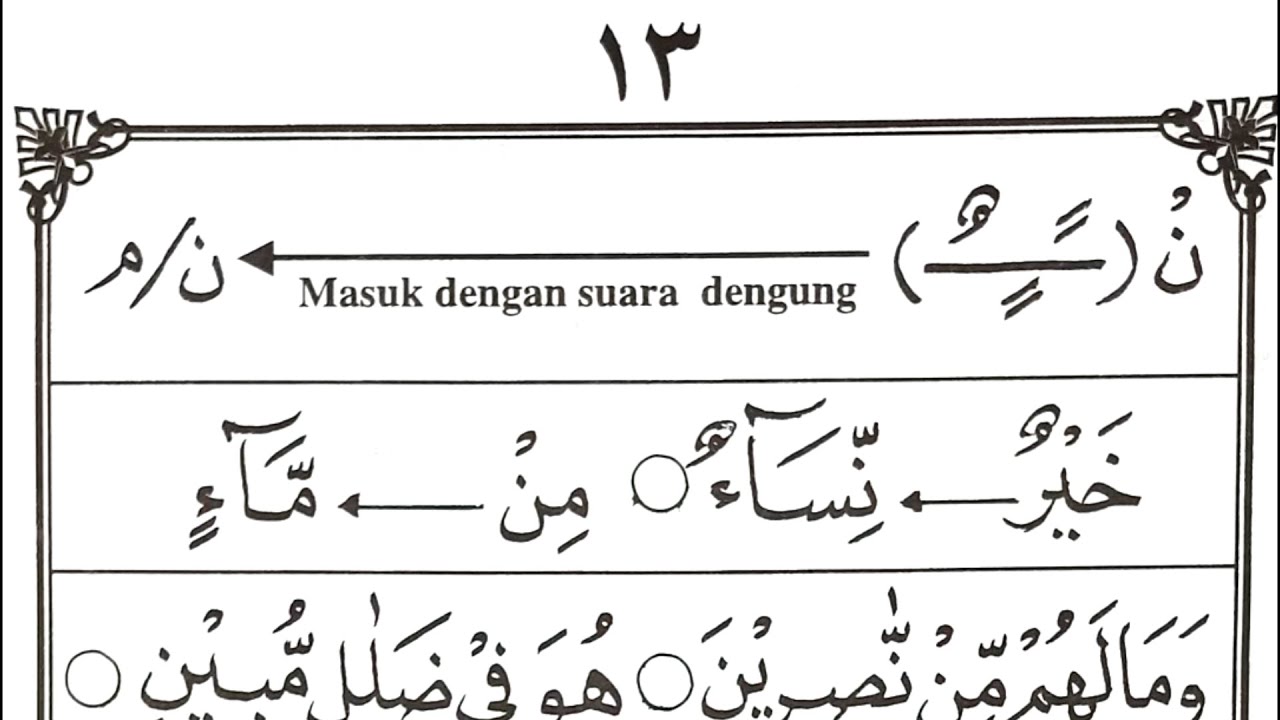 ١٣
نْ (ـًـٍـٌ) ن/م
Masuk dengan suara dengung
خَيْرٌ نِّسَآءٌ ○ مِنْ مَّآءٍ
وَمَالَهُمْ مِّنْ نّٰصِرِيْنَ ○ هُوَ فِيْ ضَلٰلٍ مُّبِيْنٍ ○